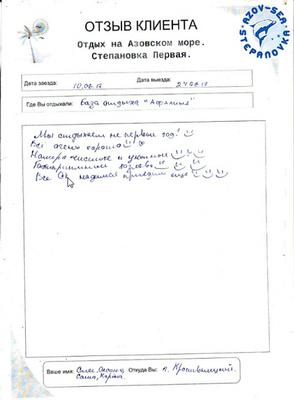 AZOV-SEA
STEPANOVKA
ОТЗЫВ КЛИЕНТА
Отдых на Азовском море.
Степановка Первая.
Дата заезда: 10.08.12 Дата выезда: 24.08.12
Где Вы отдыхали: база отдыха "Афалина"
Мы отдыхаем не первый год!
Всё очень хорошо!!!
Номера чистые и уютные
Гостеприимные хозяева
Все надеемся приедем ещё
Ваше имя: Откуда Вы:
Саша,